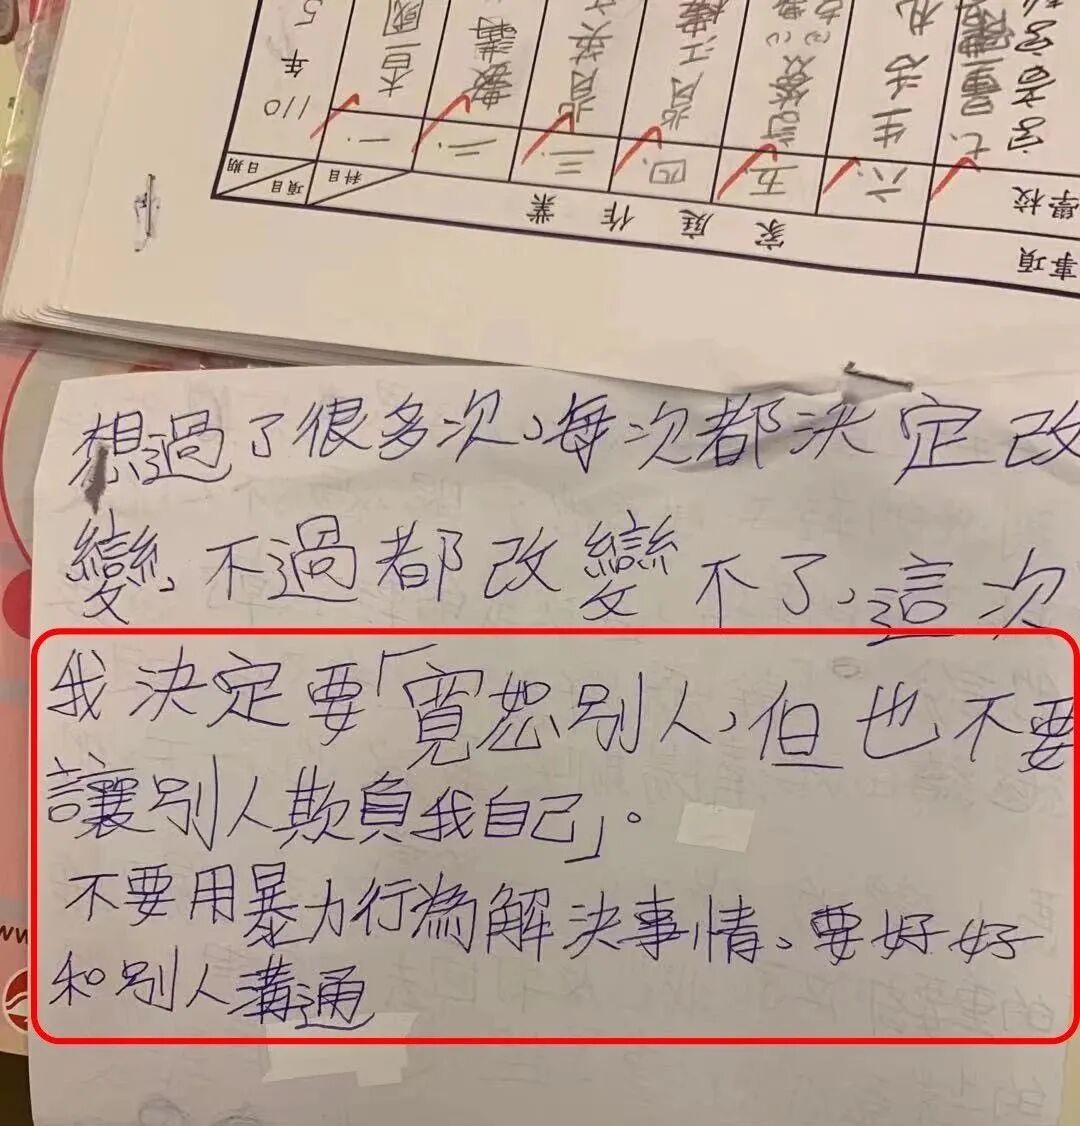 事項
家庭作業
學校
科目
項目
日期
110年5
一、
二、數講
三、
四、
五、
六、生活札
七、
想過了很多次、每次都決定改
變、不過都改變不了、這次
我決定要「寬恕別人、但也不要
讓別人欺負我自己」。
不要用暴力行為解決事情、要好好
和別人溝通